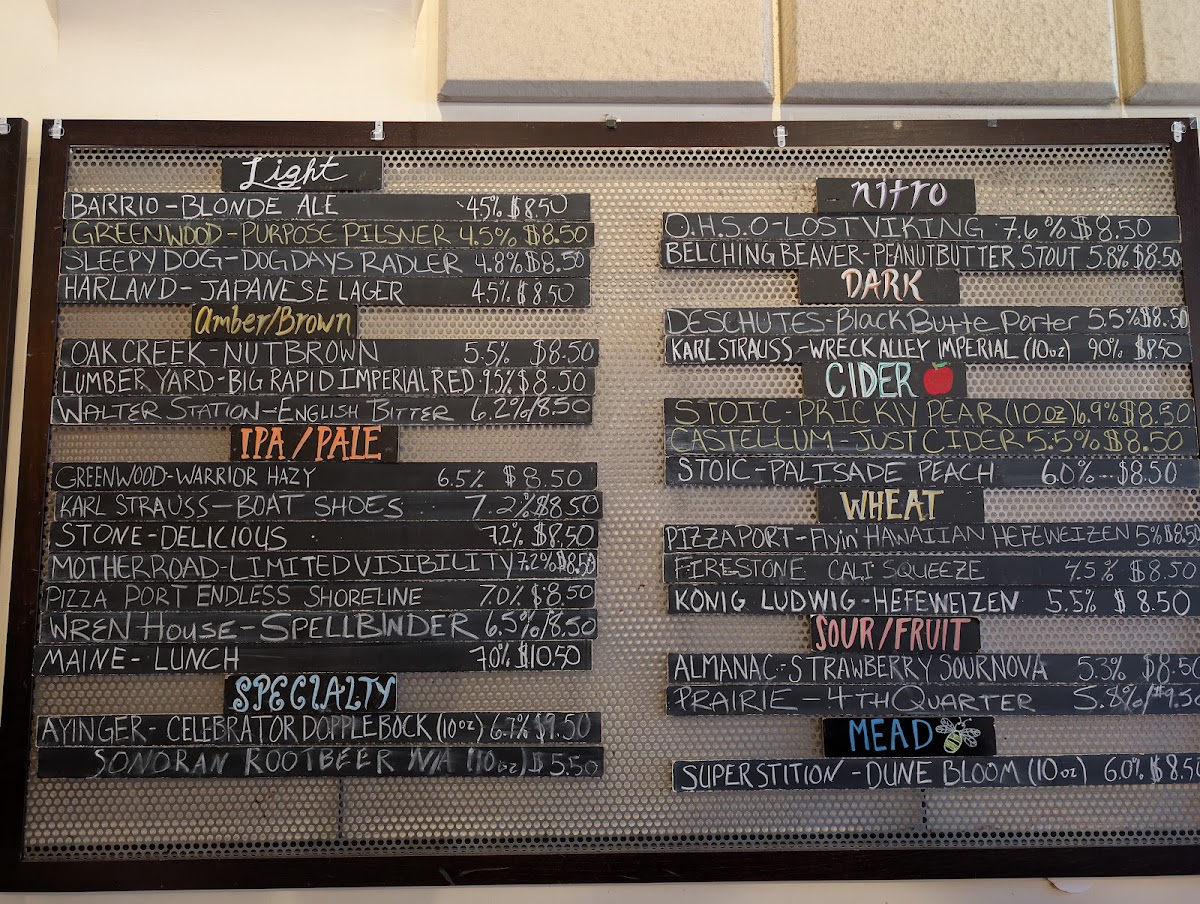 Light
BARRIO-BLONDE ALE 4.5% $8.50
GREENWOOD-PURPOSE PILSNER 4.5% $8.50
SLEEPY DOG-DOG DAYS RADLER 4.8% $8.50
HARLAND-JAPANESE LAGER 4.5% $8.50
Amber/Brown
OAK CREEK-NUT BROWN 5.5% $8.50
LUMBER YARD-BIG RAPID IMPERIAL RED 9.5% $8.50
WALTER STATION-ENGLISH BITTER 6.2%/8.50
IPA/PALE
GREENWOOD-WARRIOR HAZY 6.5% $8.50
KARL STRAUSS-BOAT SHOES 7.2% $8.50
STONE-DELICIOUS 7.2% $8.50
MOTHER ROAD-LIMITED VISIBILITY 7.2% $8.50
PIZZA PORT ENDLESS SHORELINE 7.0% $8.50
WREN HOUSE-SPELLBINDER 6.5%/8.50
MAINE-LUNCH 7.0% $10.50
SPECIALTY
AYINGER-CELEBRATOR DOPPLEBOCK (10oz) 6.7% $9.50
SONORAN ROOTBEER N/A (10oz) $5.50
nitro
O.H.S.O-LOST VIKING 7.6% $8.50
BELCHING BEAVER-PEANUTBUTTER STOUT 5.8% $8.50
DARK
DESCHUTES-Black Butte Porter 5.5% $8.50
KARL STRAUSS-WRECK ALLEY IMPERIAL (10oz) 9.0% $8.50
CIDER
STOIC-PRICKLY PEAR (10oz) 6.9% $8.50
CASTELLUM-JUST CIDER 5.5% $8.50
STOIC-PALISADE PEACH 6.0% $8.50
WHEAT
PIZZA PORT-Flyin' HAWAIIAN HEFEWEIZEN 5% $8.50
FIRESTONE CALI SQUEEZE 4.5% $8.50
KÖNIG LUDWIG-HEFEWEIZEN 5.5% $8.50
SOUR/FRUIT
ALMANAC-STRAWBERRY SOURNOVA 5.3% $8.50
PRAIRIE-4TH QUARTER 5.8%/$9.50
MEAD
SUPERSTITION-DUNE BLOOM (10oz) 6.0% $8.50